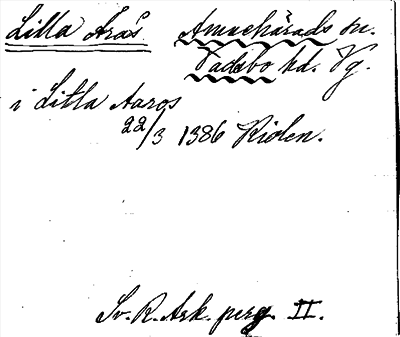 Lilla Årås Amnehärads sn.
Vadsbo hd. Vg.
i Litla Aaros
22/3 1386 Riolen.
Sv. R. Ark. perg. II.